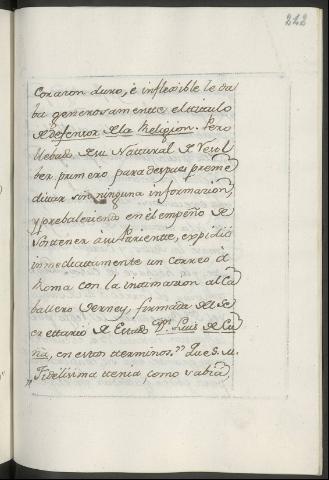 242
Corazon duro, è inflexible le da
ba generosamente el titulo
de defensor de la Religion. Pero
llebado de su Natural de resol
ber primero para despues preme
ditar sin ninguna informacion
y prebaleciendo en el empeño de
sostener à su Pariente, expidiò
inmediatamente un correo à
Roma con la intimacion al Ca
ballero Derney, firmada del se
crettario de Estado Dn. Luis de Cu
ña, en estos terminos. "Que S. M.
"Fidelisima tenia, como sabia